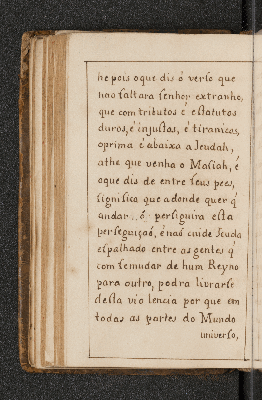 he pois oque dis ó verso que
nao faltara senhor extranho,
que com tributos é estatutos
duros, é injustas, é tiranicas,
oprima é abaixa a Jeudah,
athe que venha o Masiah, é
oque dis de entre seus pees,
significa que adonde quer q̃
andar, ó perseguira esta
perseguiçaó, é naó cuide Jeuda
espalhado entre as gentes q̃
com semudar de hum Reyno
para outro, podra livrarse
desta violencia por que em
todas as partes do Mundo
universo,